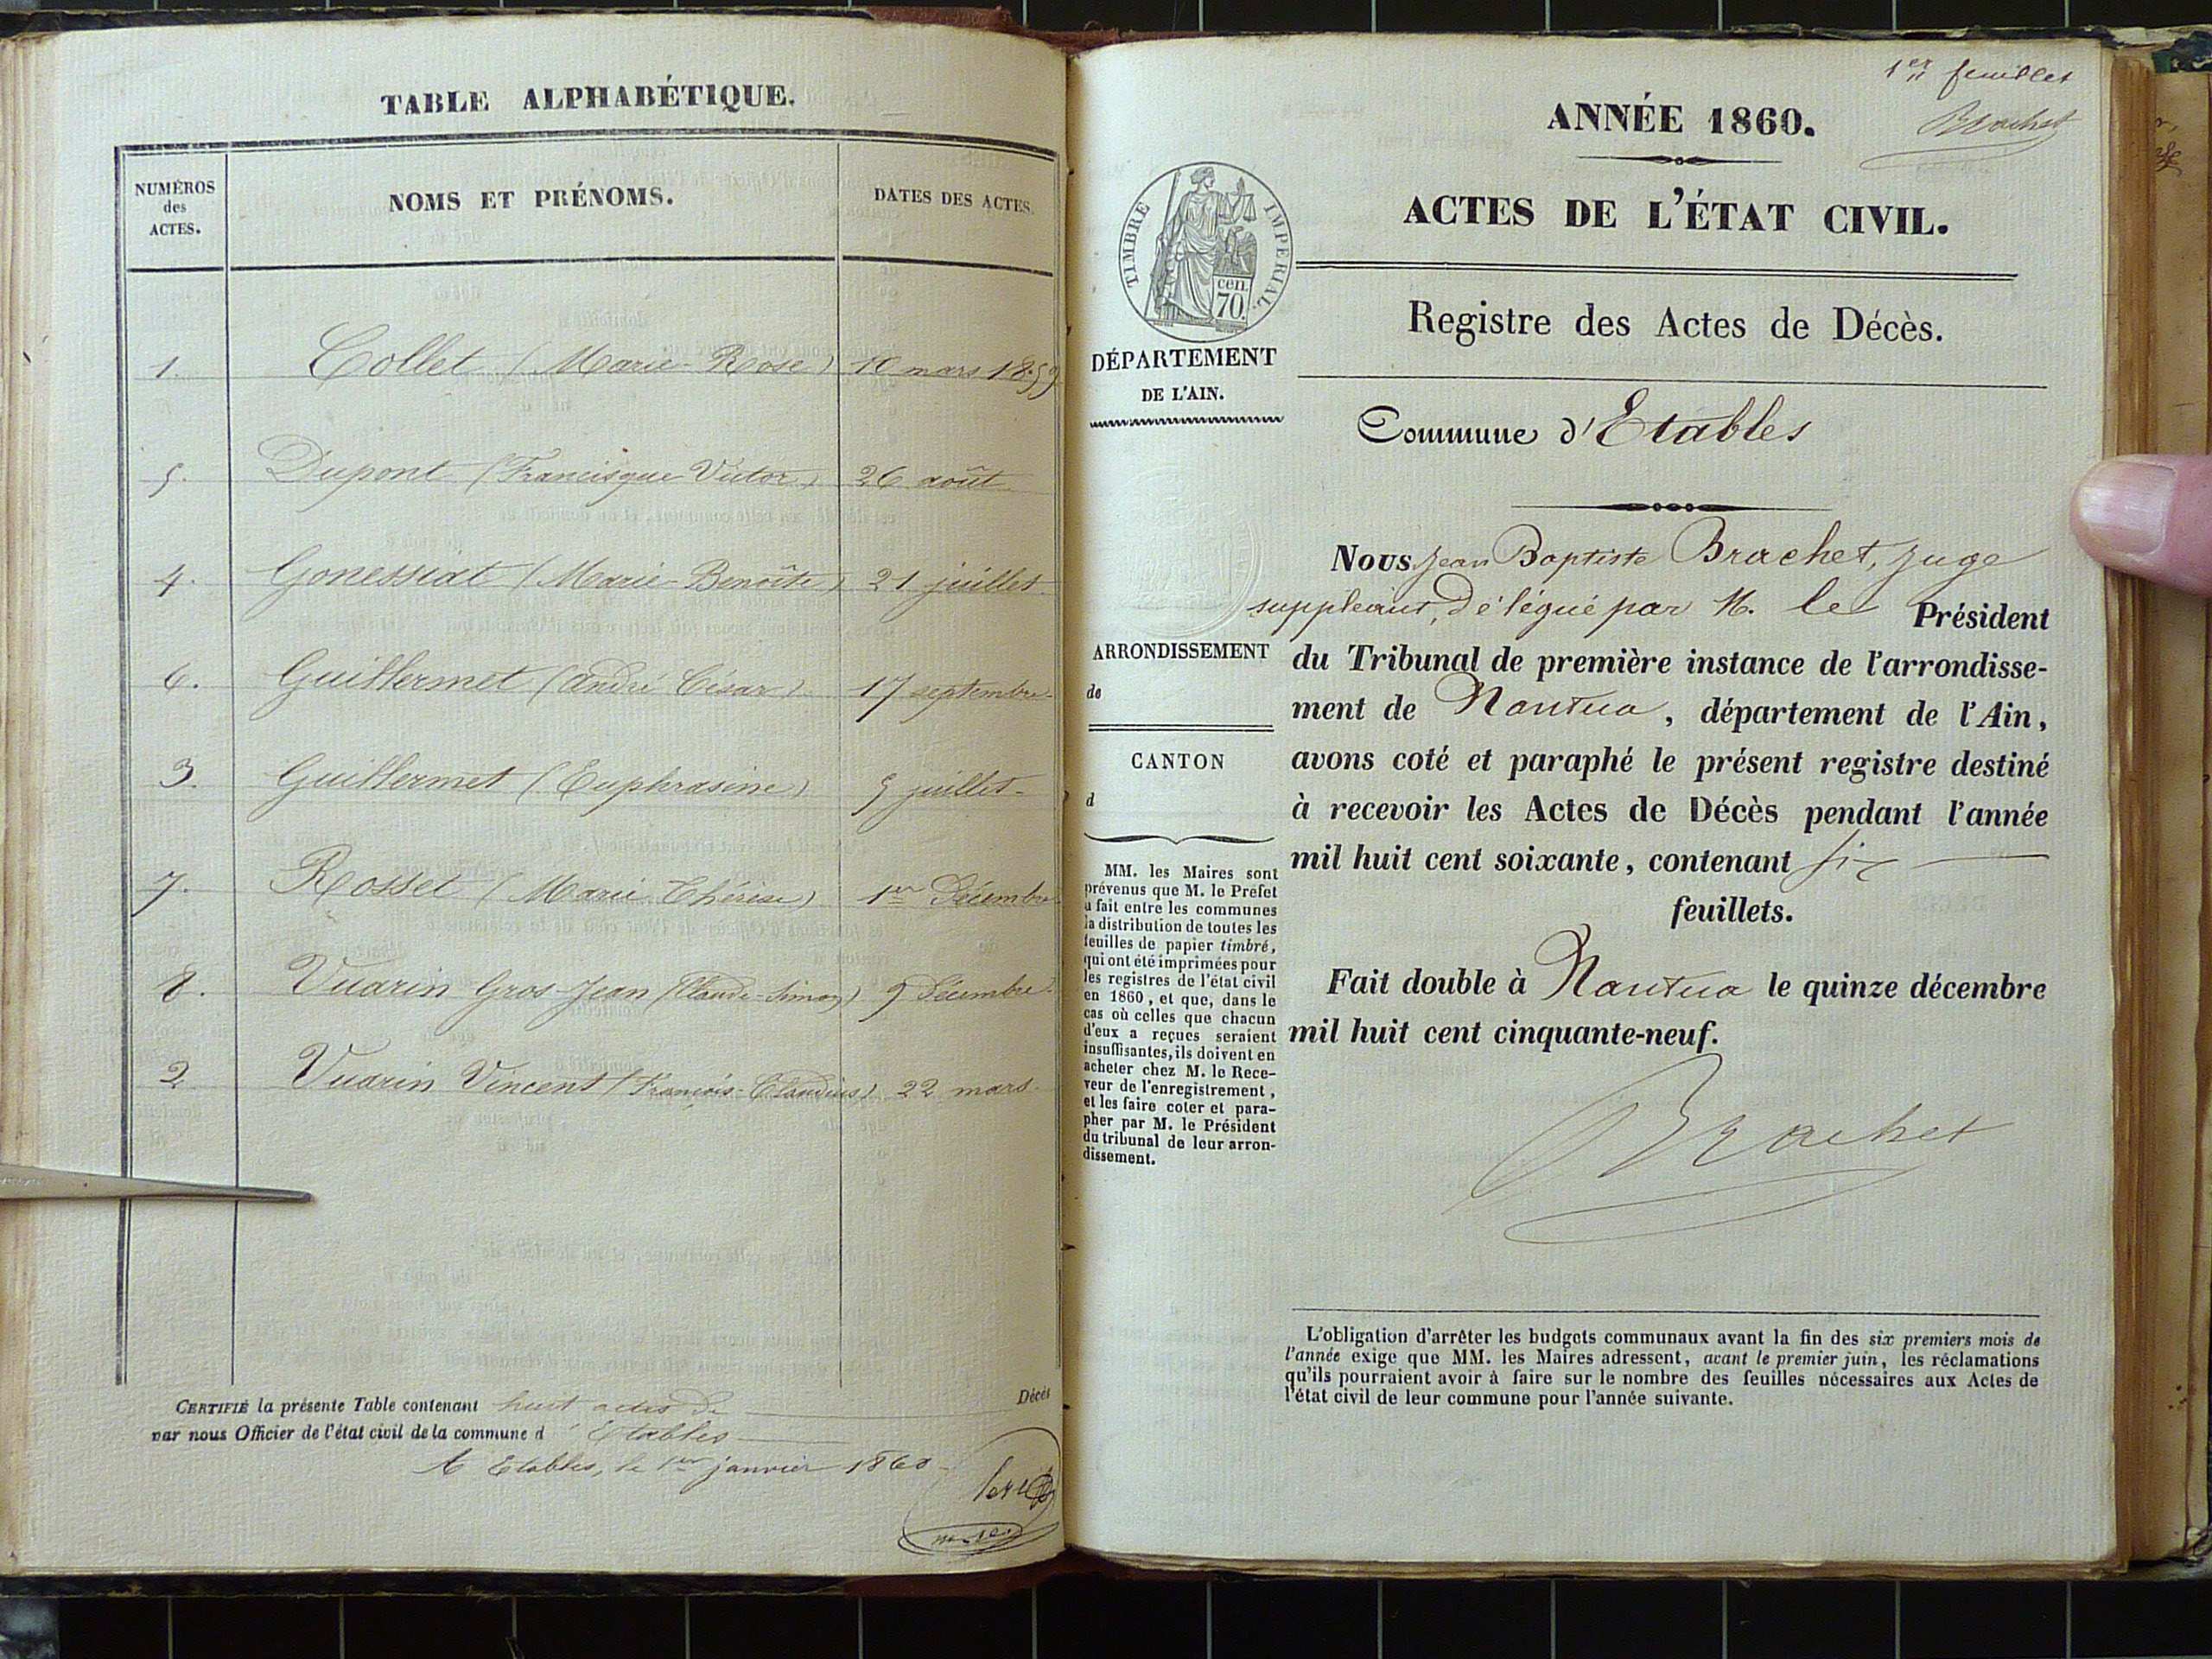 TABLE ALPHABÉTIQUE.
NUMÉROS des ACTES.
NOMS ET PRÉNOMS.
DATES DES ACTES.
1. Collet (Marie-Rose) 10 mars 1859
5. Dupont (Francisque Victor) 26 août
4. Gonessiat (Marie-Benoîte) 21 juillet
6. Guillermet (André César) 17 septembre
3. Guillermet (Euphrasine) 5 juillet
7. Rosset (Marie Thérèse) 1er Décembre
8. Vuarin Gros Jean (Claude-Simon) 9 Décembre
2 Vuarin Vincent (François-Claudius) 22 mars
CERTIFIÉ la présente Table contenant huit actes de Décès
par nous Officier de l'état civil de la commune d'Etables
A Etables, le 1er janvier 1860
1er feuillet
Brachet
ANNÉE 1860.
ACTES DE L'ÉTAT CIVIL.
TIMBRE IMPÉRIAL.
cen.
70.
DÉPARTEMENT
DE L'AIN.
Registre des Actes de Décès.
Commune d'Etables
Nous Jean Baptiste Brachet, juge
suppleant, délégué par M. le Président
du Tribunal de première instance de l'arrondisse-
ment de Nantua, département de l'Ain,
avons coté et paraphé le présent registre destiné
à recevoir les Actes de Décès pendant l'année
mil huit cent soixante, contenant six
feuillets.
Fait double à Nantua le quinze décembre
mil huit cent cinquante-neuf.
Brachet
ARRONDISSEMENT
de
CANTON
d
MM. les Maires sont
prévenus que M. le Préfet
a fait entre les communes
la distribution de toutes les
feuilles de papier timbré,
qui ont été imprimées pour
les registres de l'état civil
en 1860, et que, dans le
cas où celles que chacun
d'eux a reçues seraient
insuffisantes, ils doivent en
acheter chez M. le Rece-
veur de l'enregistrement,
et les faire coter et para-
pher par M. le Président
du tribunal de leur arron-
dissement.
L'obligation d'arrêter les budgets communaux avant la fin des six premiers mois de
l'année exige que MM. les Maires adressent, avant le premier juin, les réclamations
qu'ils pourraient avoir à faire sur le nombre des feuilles nécessaires aux Actes de
l'état civil de leur commune pour l'année suivante.